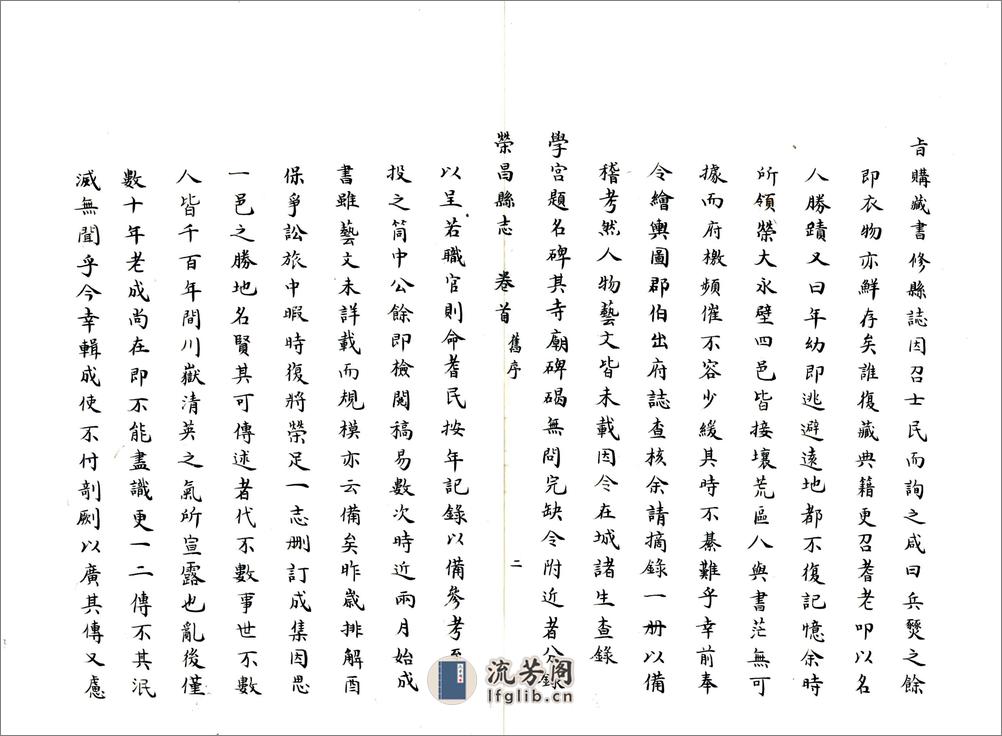 旨購藏書修縣誌因召士民而詢之咸曰兵燹之餘
即衣物亦鮮存矣誰復藏典籍更召耆老叩以名
人勝蹟又曰年幼即逃避遠地都不復記憶余時
所領榮大永壁四邑皆接壤荒區人與書茫無可
據而府檄頻催不容少緩其時不綦難乎幸前奉
令繪輿圖郡伯出府誌查核余請摘錄一册以備
稽考然人物藝文皆未載因令在城諸生查錄
學宮題名碑其寺廟碑碣無問完缺令附近者公錄
榮昌縣志 卷首 舊序 二
以呈若職官則命耆民按年記錄以備參考
投之筒中公餘即檢閱稿易數次時近兩月始成
書雖藝文未詳載而規模亦云備矣昨歲排解酉
保爭訟旅中暇時復將榮足一志刪訂成集因思
一邑之勝地名賢其可傳述者代不數事世不數
人皆千百年間川嶽清英之氣所宣露也亂後僅
數十年老成尚在即不能盡識更一二傳不其泯
滅無聞乎今幸輯成使不付剞劂以廣其傳又慮
流芳阁
lfglib.cn